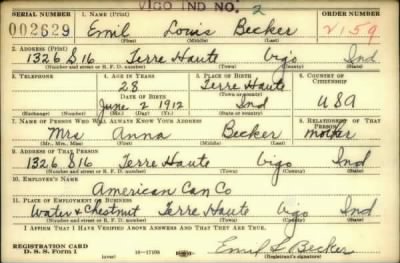 VIGO IND NO. 2
SERIAL NUMBER 1. NAME (Print) ORDER NUMBER
002629 Emil Louis Becker 2159
(First) (Middle) (Last)
2. ADDRESS (Print)
1326 S 16 Terre Haute Vigo Ind
(Number and street or R. F. D. number) (Town) (County) (State)
3. TELEPHONE 4. AGE IN YEARS 5. PLACE OF BIRTH 6. COUNTRY OF CITIZENSHIP
28 Terre Haute
DATE OF BIRTH (Town or county)
June 2 1912 Ind USA
(Exchange) (Number) (Mo.) (Day) (Yr.) (State or country)
7. NAME OF PERSON WHO WILL ALWAYS KNOW YOUR ADDRESS 8. RELATIONSHIP OF THAT PERSON
Mrs Anna Becker mother
(Mr., Mrs., Miss) (First) (Middle) (Last)
9. ADDRESS OF THAT PERSON
1326 S 16 Terre Haute Vigo Ind
(Number and street or R. F. D. number) (Town) (County) (State)
10. EMPLOYER'S NAME
American Can Co
11. PLACE OF EMPLOYMENT OR BUSINESS
Water & Chestnut Terre Haute Vigo Ind
(Number and street or R. F. D. number) (Town) (County) (State)
I AFFIRM THAT I HAVE VERIFIED ABOVE ANSWERS AND THAT THEY ARE TRUE.
REGISTRATION CARD
D. S. S. Form 1 (over) 16—17105 Emil L Becker
(Registrant's signature)